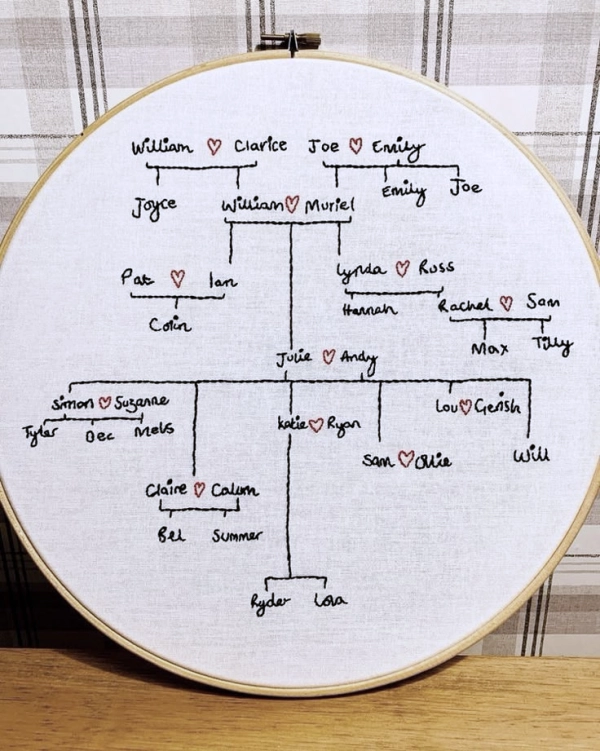 William ♡ Clarice Joe ♡ Emily
Joyce William ♡ Muriel Emily Joe
Pat ♡ Ian Lynda ♡ Ross
Colin Hannah Rachel ♡ Sam
Max Tilly
Julie ♡ Andy
Simon ♡ Suzanne Lou ♡ Gerish
Tyler Dec Mels Katie ♡ Ryan
Sam ♡ Ollie Will
Claire ♡ Calum
Bel Summer
Ryder Lola